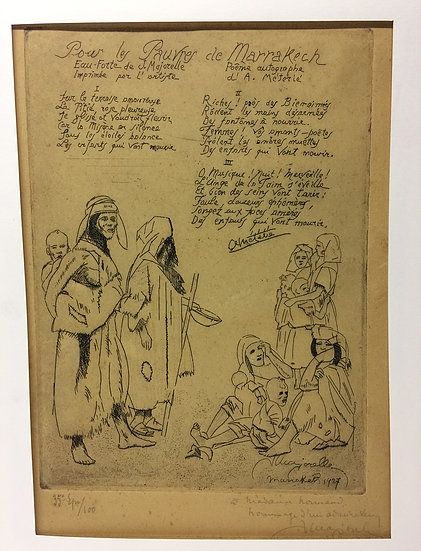 Pour les Pauvres de Marrakech
Eau-Forte de J. Majorelle
Imprimée par l'artiste
Poème autographe
d'A. Métérié
I
Sur la terrasse amoureuse
La Pitié rose pleureuse
Je glisse et voudrait fleurir
Car la Misère en silence
Sous les étoiles balance
Les enfants qui vont mourir.
II
Riches! près des Bienaimées
Rôdent les mains désarmées
Des fantômes à nourrir.
Femmes! Vos amants-poètes
Frôlent les ombres muettes
Des enfants qui vont mourir.
III
O Musique! Nuit! Merveille!
L'Ange de la Faim s'éveille
Et bien des seins vont tarir:
Toute douceurs éphémères
Songez aux joies amères
Des enfants qui vont mourir.
AMétérié
J Majorelle
Marrakech 1927
35e Epr/100
à Madame
hommage d'un admirateur
J Majorelle